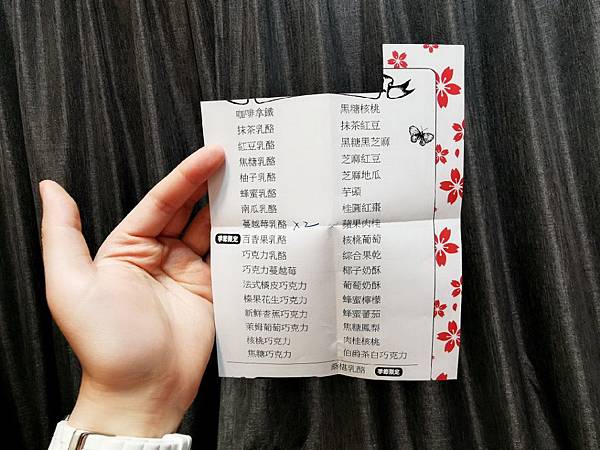 咖啡拿鐵
抹茶乳酪
紅豆乳酪
焦糖乳酪
柚子乳酪
蜂蜜乳酪
南瓜乳酪
蔓越莓乳酪 x2
季節限定 百香果乳酪
巧克力乳酪
巧克力蔓越莓
法式橘皮巧克力
榛果花生巧克力
新鮮香蕉巧克力
萊姆葡萄巧克力
核桃巧克力
焦糖巧克力
黑糖核桃
抹茶紅豆
黑糖黑芝麻
芝麻紅豆
芝麻地瓜
芋頭
桂圓紅棗
蘋果肉桂
核桃葡萄
綜合果乾
椰子奶酥
葡萄奶酥
蜂蜜檸檬
蜂蜜蕃茄
焦糖鳳梨
肉桂核桃
伯爵茶白巧克力
桑椹乳酪 季節限定